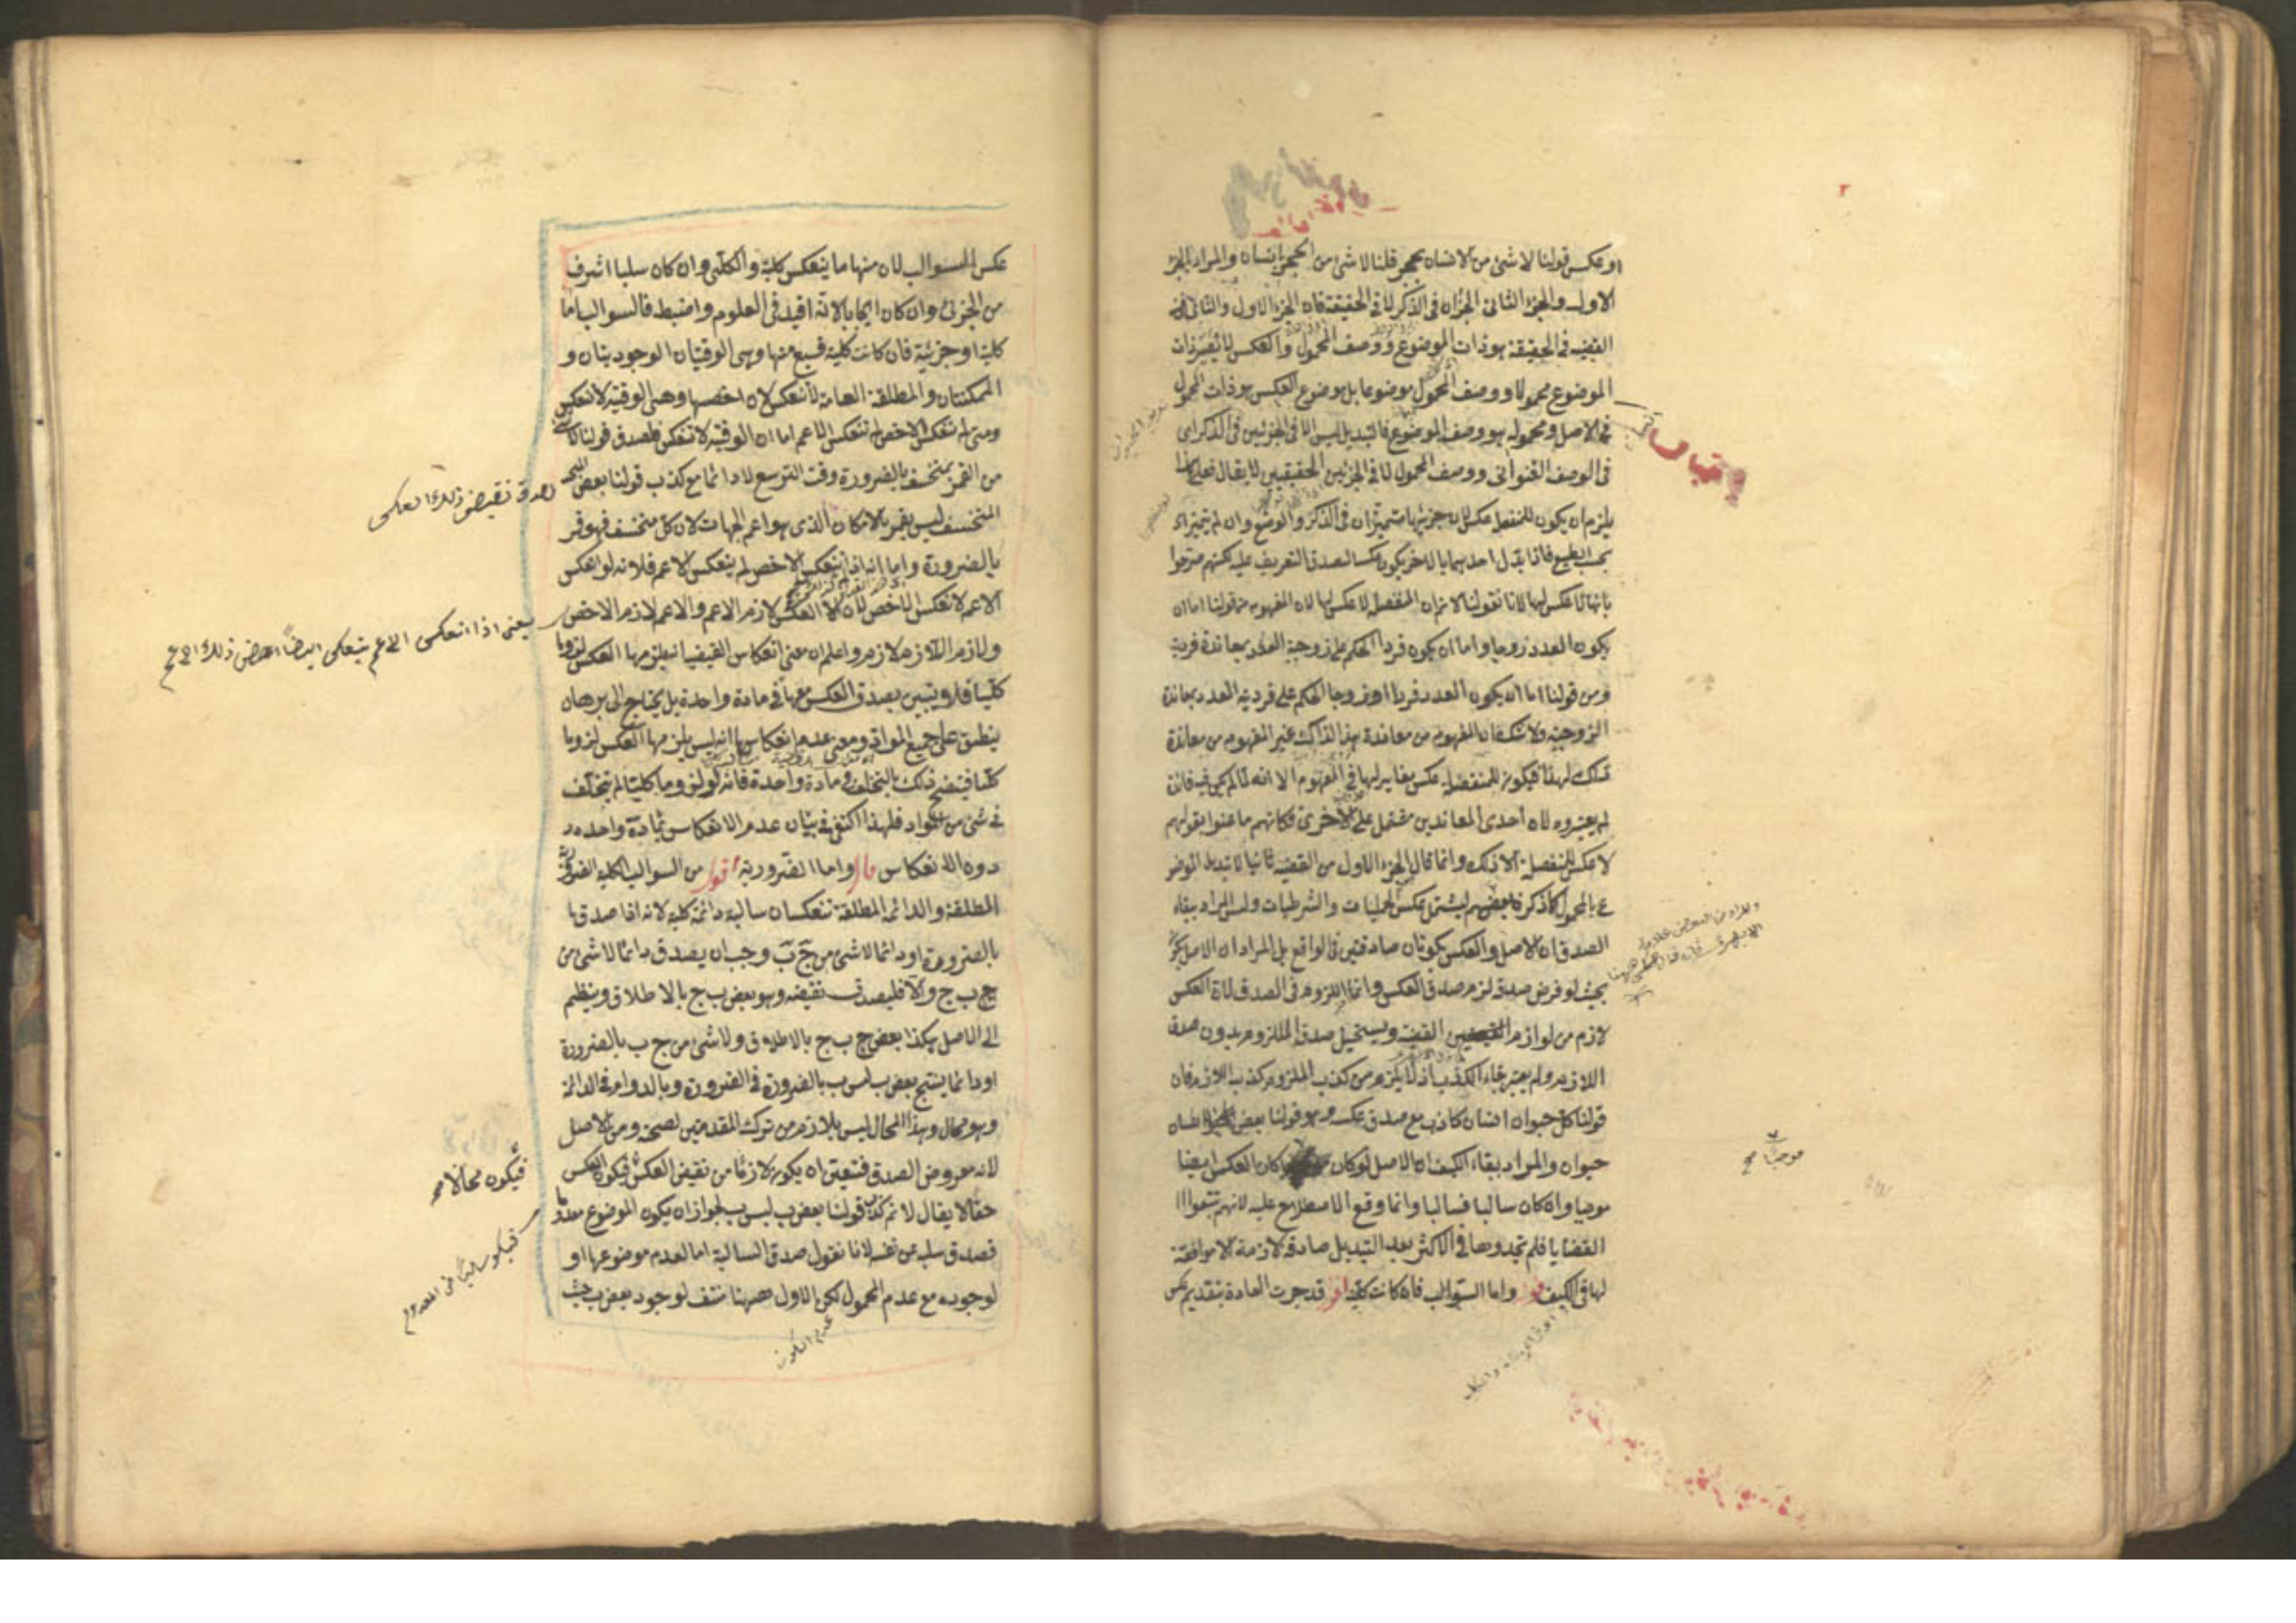 او عكس قولنا لا شئ من الانسان بحجر قلنا لا شئ من الحجر بانسان والمراد بالجزء
الاول والجزء الثانى الجزان فى الذكر لا فى الحقيقة فان الجزء الاول والثانى من
القضية فى الحقيقة هو ذات الموضوع ووصف المحمول والعكس لا يصير ذات
الموضوع محمولا ووصف المحمول موضوعا بل موضوع العكس هو ذات المحمول
فى الاصل ومحموله هو وصف الموضوع فالتبديل ليس الا فى الجزئين فى الذكر اى
فى الوصف العنوانى ووصف المحمول لا فى الجزئين الحقيقيين لا يقال فعلى هذا
يلزم ان يكون للمنفصلة عكس لان جزئيها متميزان فى الذكر والوضع وان لم يتميزا
بحسب الطبع فاذا بدل احدهما بالاخر يكون عكسا لصدق التعريف عليه لكنهم صرحوا
بانها لا عكس لها لانا نقول لانم ان المنفصلة لا عكس لها لان المفهوم من قولنا اما ان
يكون العدد زوجا واما ان يكون فردا الحكم على زوجية العدد بمعاندة فردية
ومن قولنا اما ان يكون العدد فردا او زوجا الحكم على فردية العدد بمعاندة
الزوجية ولا شك ان المفهوم من معاندة هذا لذاك غير المفهوم من معاندة
ذاك لهذا فيكون للمنفصلة عكس مغاير لها فى المفهوم الا انه لما لم يكن فيه فائدة
لم يعتبروه لان احدى المعاندين مشتمل على الاخرى فكانهم ما عنوا بقولهم
لا عكس للمنفصلة الا ذلك وانما قال الجزء الاول من القضية ثانيا لا تبديل الموضو
ع بالمحمول كما ذكر بعضهم ليشتمل عكس الحمليات والشرطيات وليس المراد ببقاء
الصدق ان الاصل والعكس يكونان صادقين فى الواقع بل المراد ان الاصل يكون
بحيث لو فرض صدقه لزم صدق العكس وانما اللزوم فى الصدق لان العكس
لازم من لوازم القضية ويستحيل صدق الملزوم بدون صدق
اللازم ولم يعتبر بقاء الكذب اذ لا يلزم من كذب الملزوم كذب اللازم فان
قولنا كل حيوان انسان كاذب مع صدق عكسه وهو قولنا بعض الانسان
حيوان والمراد ببقاء الكيف ان الاصل لو كان كان العكس ايضا
موجبا وان كان سالبا فسالبا وانما وقع الاصطلاح عليه لانهم تتبعوا
القضايا فلم يجدوها فى الاكثر بعد التبديل صادقة لازمة الا موافقة
لها فى الكيف قال واما السوالب فان كانت كلية اقول قد جرت العادة بتقديم عكس
موجبا صح
عكس السوالب لان منها ما ينعكس كلية والكلى وان كان سلبا اشرف
من الجزئى وان كان ايجابا لانه افيد فى العلوم واضبط فالسوالب اما
كلية او جزئية فان كانت كلية فسبع منها وهى الوقتيتان الوجوديتان و
الممكنتان والمطلقة العامة لا تنعكس لان اخصها وهى الوقتية لا تنعكس
ومتى لم تنعكس الاخص لم تنعكس الاعم اما ان الوقتية لا تنعكس فلصدق قولنا لا شئ
من القمر بمنخسف بالضرورة وقت التربيع لا دائما مع كذب قولنا بعض
المنخسف ليس بقمر بالامكان الذى هو اعم الجهات لان كل منخسف فهو قمر
بالضرورة واما انه اذا لم ينعكس الاخص لم ينعكس الاعم فلانه لو انعكس
الاعم لانعكس الاخص لان العكس لازم الاعم والاعم لازم الاخص
ولازم اللازم لازم واعلم ان معنى انعكاس القضية انه يلزمها العكس لزوما
كليا فلا يتبين بصدق العكس معها فى مادة واحدة بل يحتاج الى برهان
ينطبق على جميع المواد ومعنى عدم انعكاسها انه ليس يلزمها العكس لزوما
كليا فيتضح ذلك بالتخلف فى مادة واحدة فانه لو لزوما كليا لم يتخلف
فى شئ من المواد فلهذا اكتفى فى بيان عدم الانعكاس بمادة واحدة
دون الانعكاس قال واما الضرورية اقول من السوالب الكلية الضرورية
المطلقة والدائمة المطلقة تنعكسان سالبة دائمة كلية لانه اذا صدق
بالضرورة او دائما لا شئ من ج ب وجب ان يصدق دائما لا شئ من
ب ج والا فليصدق نقيضه وهو بعض ب ج بالاطلاق وينظم
الى الاصل هكذا بعض ب ج بالاطلاق ولا شئ من ج ب بالضرورة
او دائما ينتج بعض ب ليس ب بالضرورة فى الضرورة وبالدوام فى الدائمة
وهو محال وهذا المحال ليس بلازم من ترك المقدمتين لصحته ومن الاصل
لانه مفروض الصدق فتعين ان يكون لازما من نقيض العكس فيكون العكس
حقا لا يقال لانم كذب قولنا بعض ب ليس ب لجواز ان يكون الموضوع معدوما
فصدق سلبه عن نفسه لانا نقول صدق السالبة اما لعدم موضوعها او
لوجوده مع عدم المحمول لكن الاول ههنا منتف لوجود بعض ب حيث
لصدق نقيض ذلك العكس
يعنى اذا انعكس الاعم ينعكس ايضا اخص ذلك الاعم
فيكون محالا صح